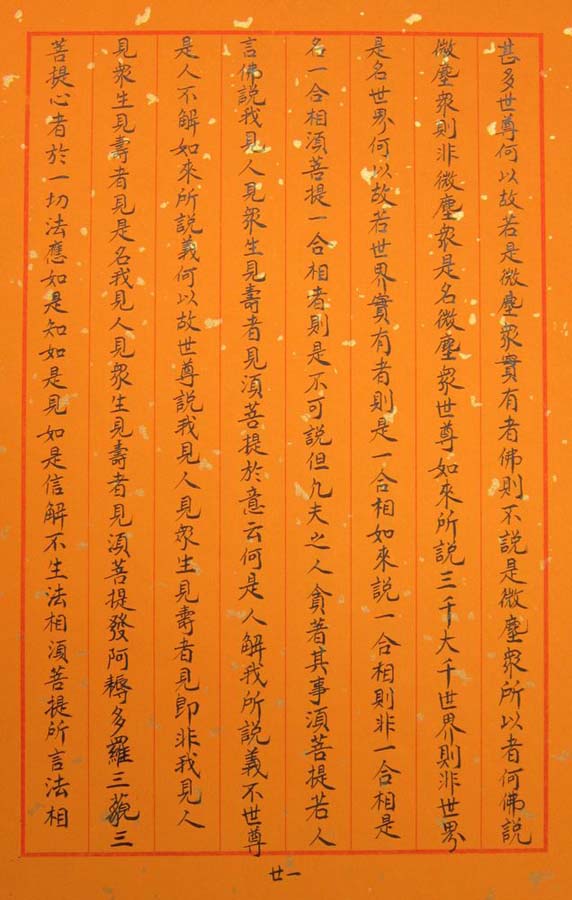 甚多世尊何以故若是微塵眾實有者佛則不說是微塵眾所以者何佛說
微塵眾則非微塵眾是名微塵眾世尊如來所說三千大千世界則非世界
是名世界何以故若世界實有者則是一合相如來說一合相則非一合相是
名一合相須菩提一合相者則是不可說但凡夫之人貪著其事須菩提若人
言佛說我見人見眾生見壽者見須菩提於意云何是人解我所說義不世尊
是人不解如來所說義何以故世尊說我見人見眾生見壽者見即非我見人
見眾生見壽者見是名我見人見眾生見壽者見須菩提發阿耨多羅三藐三
菩提心者於一切法應如是知如是見如是信解不生法相須菩提所言法相
廿一